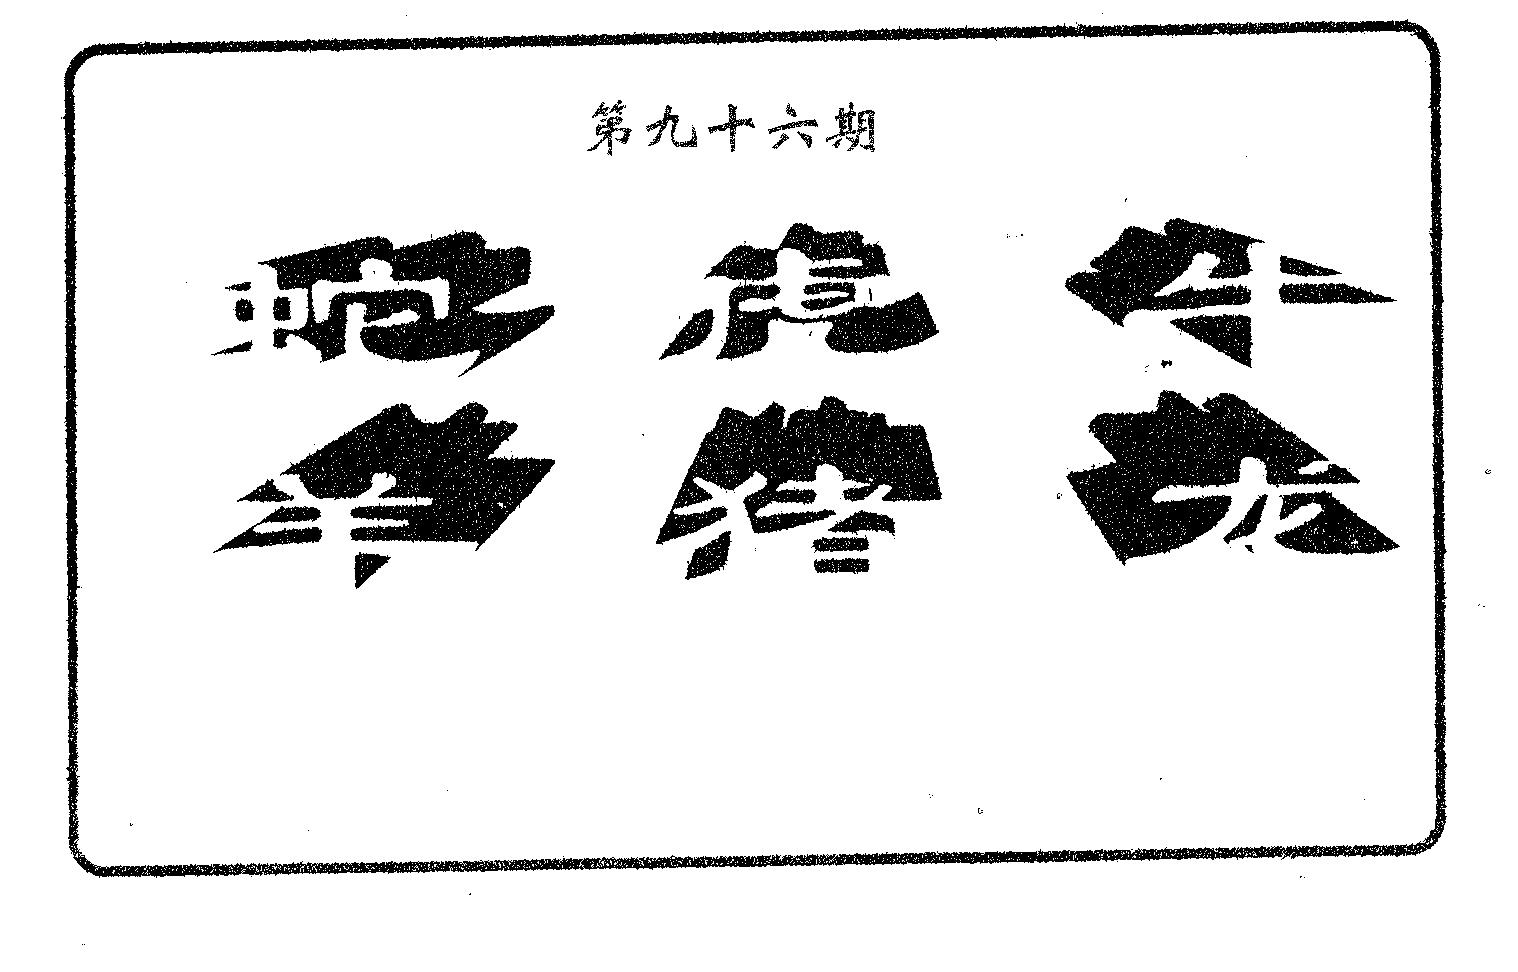 第九十六期
蛇虎牛
羊猪龙